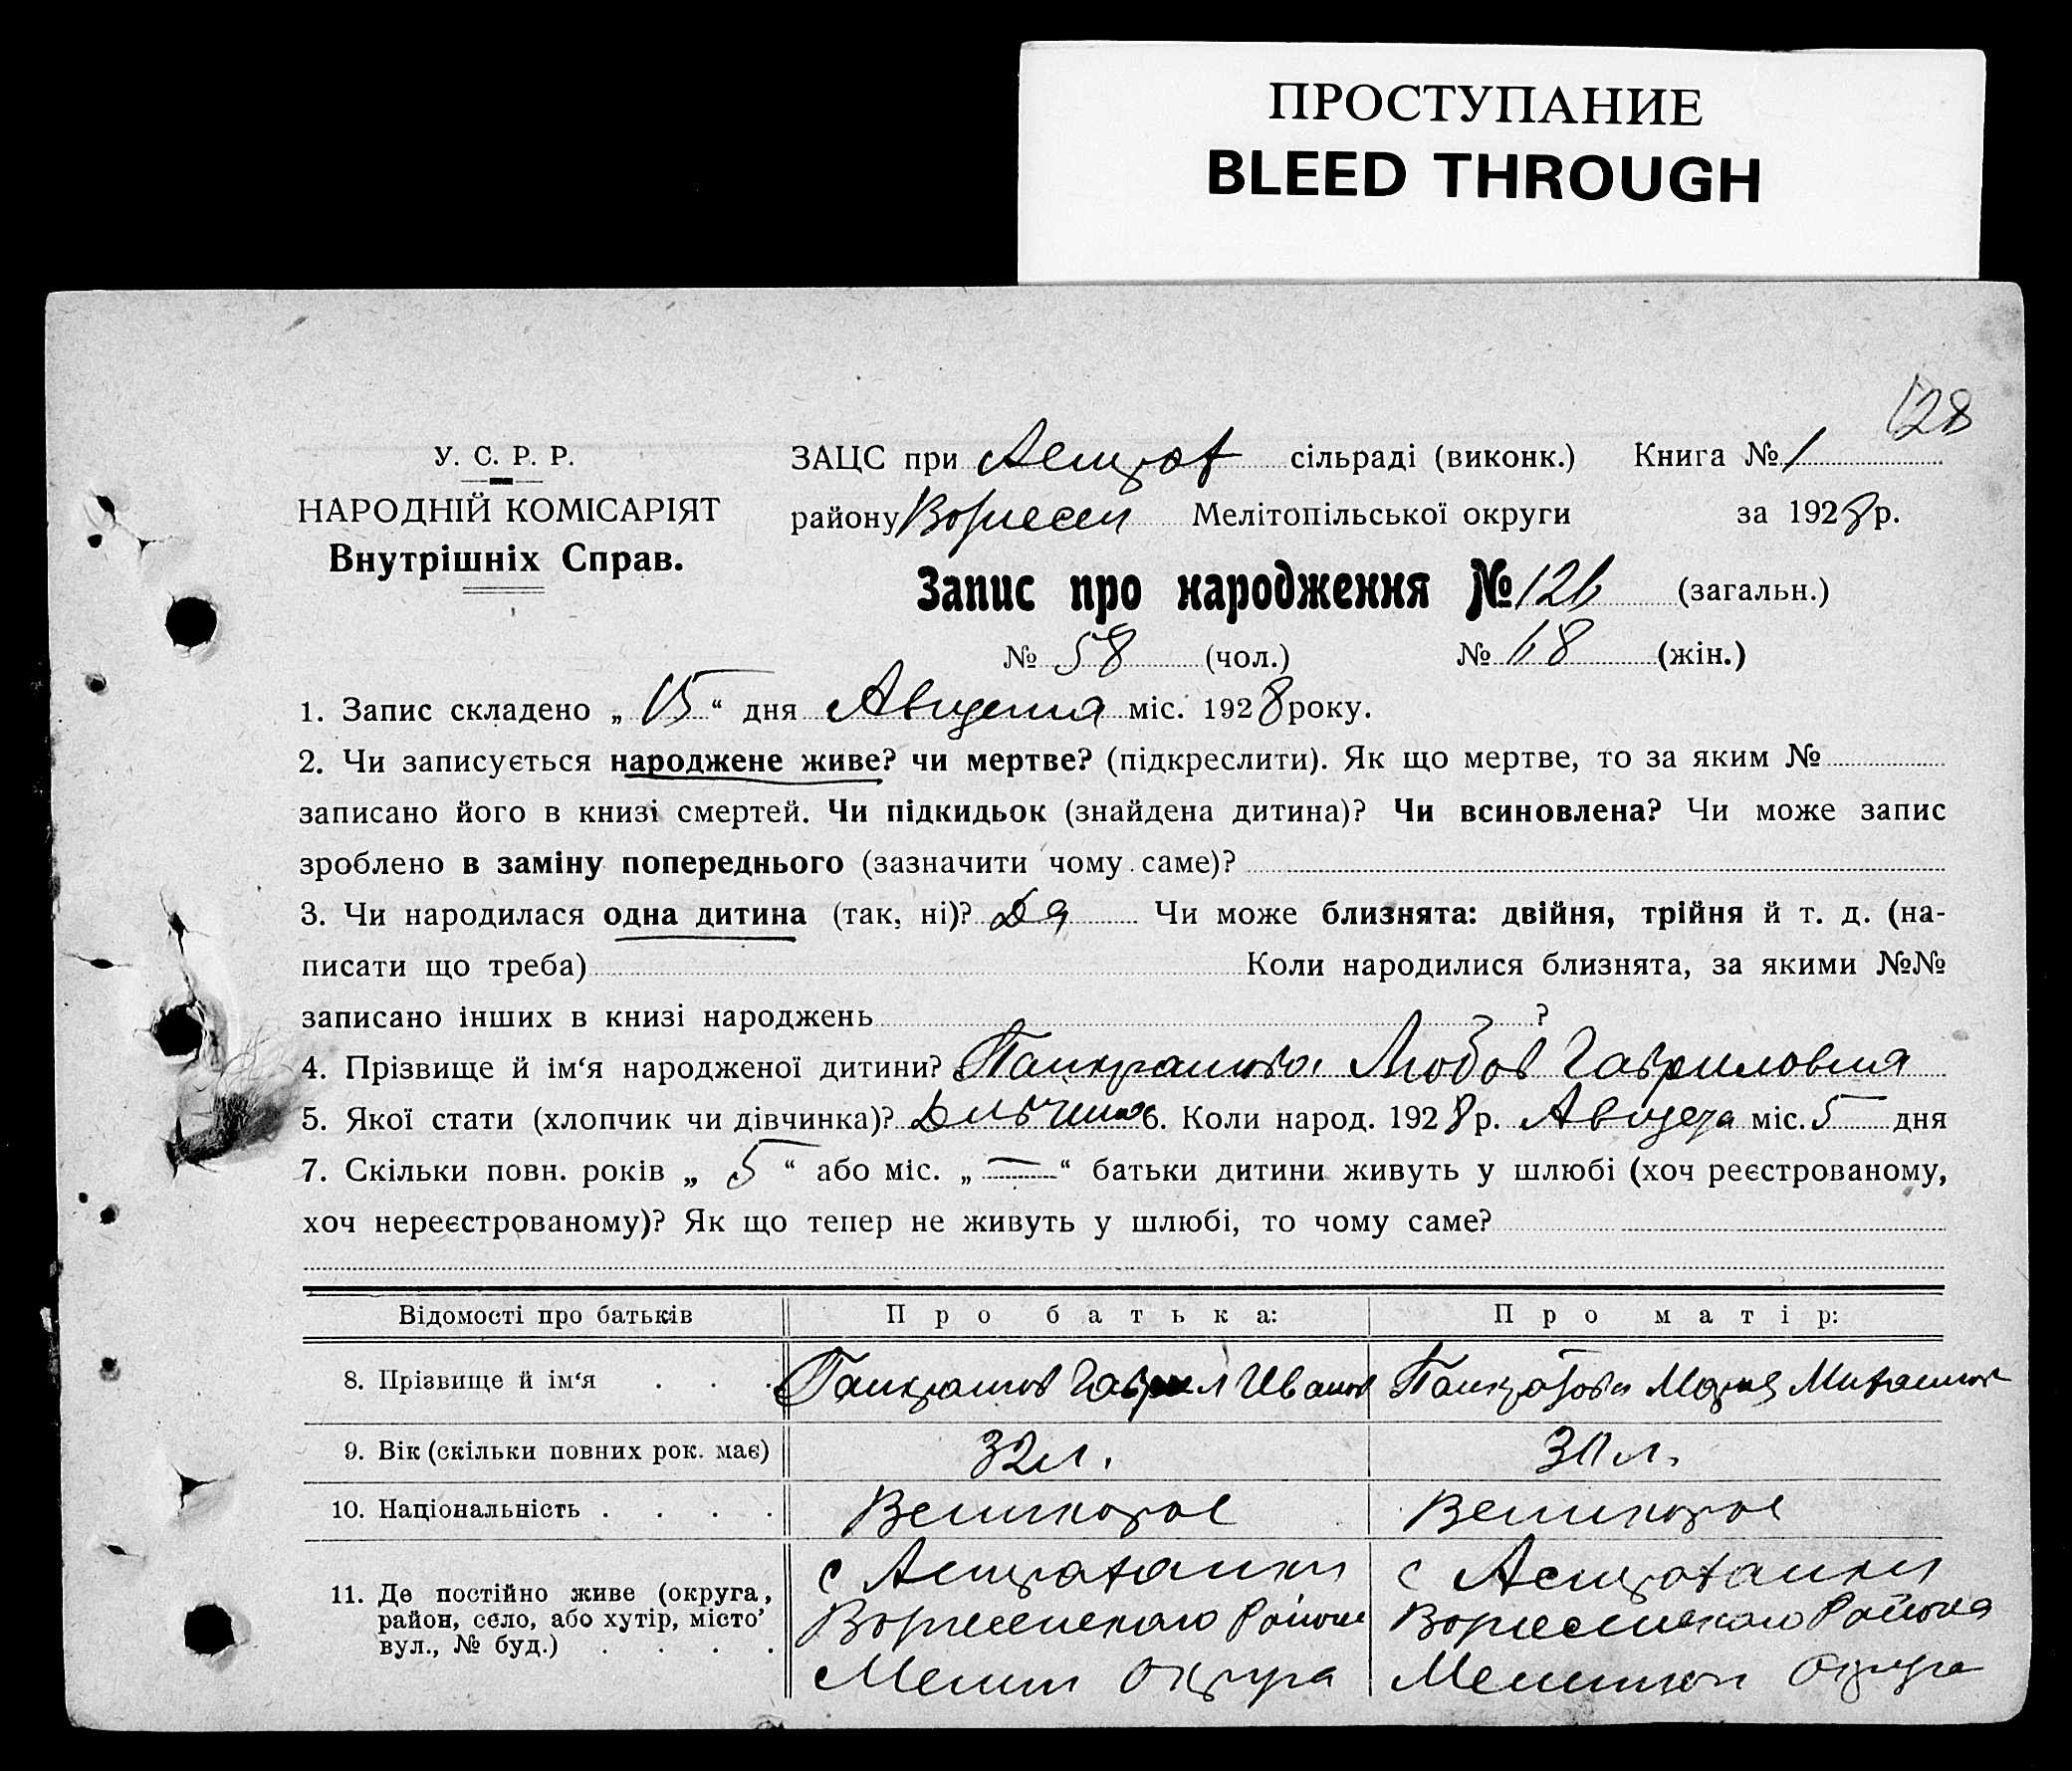 ПРОСТУПАНИЕ
BLEED THROUGH
128
У. С. Р. Р.
НАРОДНІЙ КОМІСАРІЯТ
Внутрішніх Справ.
ЗАЦС при Астрах сільраді (виконк.) Книга № 1
району Мелітопільської округи за 1928 р.
Запис про народження № 126 (загальн.)
№ 58 (чол.) № 68 (жін.)
1. Запис складено „ 15 “ дня Августа міс. 1928 року.
2. Чи записується народжене живе? чи мертве? (підкреслити). Як що мертве, то за яким №
записано його в книзі смертей. Чи підкидьок (знайдена дитина)? Чи всиновлена? Чи може запис
зроблено в заміну попереднього (зазначити чому саме)?
3. Чи народилася одна дитина (так, ні)? Да Чи може близнята: двійня, трійня й т. д. (на-
писати що треба) Коли народилися близнята, за якими №№
записано інших в книзі народжень ?
4. Прізвище й ім‘я народженої дитини? Панкратова Любов Гавриловна
5. Якої стати (хлопчик чи дівчинка)? 6. Коли народ. 1928 р. Августа міс. 5 дня
7. Скільки повн. років „ 5 “ або міс. „ — “ батьки дитини живуть у шлюбі (хоч реєстрованому,
хоч нереєстрованому)? Як що тепер не живуть у шлюбі, то чому саме?
Відомості про батьків Про батька: Про матір:
8. Прізвище й ім‘я . . . Панкратов Гаврил Иванов Панкратова Мария
9. Вік (скільки повних рок. має) 32 л. 30 л.
10. Національність . . . . Великорос Великорос
11. Де постійно живе (округа, район, село, або хутір, місто’ вул., № буд.) . . . .
с Астраханки с Астраханки
Района Района
Мелит Округа Мелитоп Округа